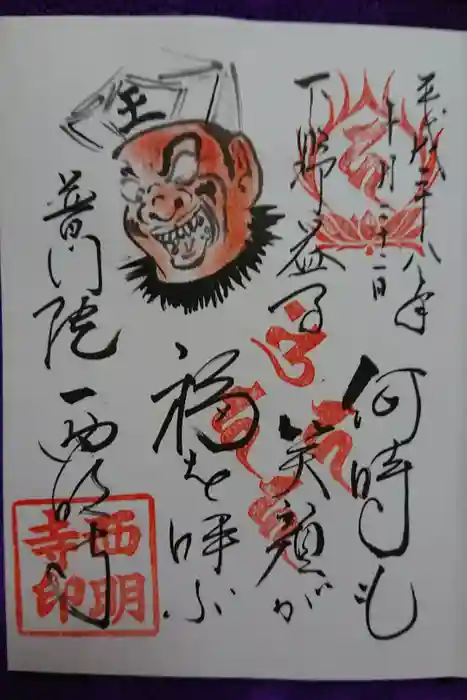 平成二十八年
十月二十二日
下野益子
何時も
笑顔が
福を呼ぶ
王
普門院
西明寺
西明
寺印